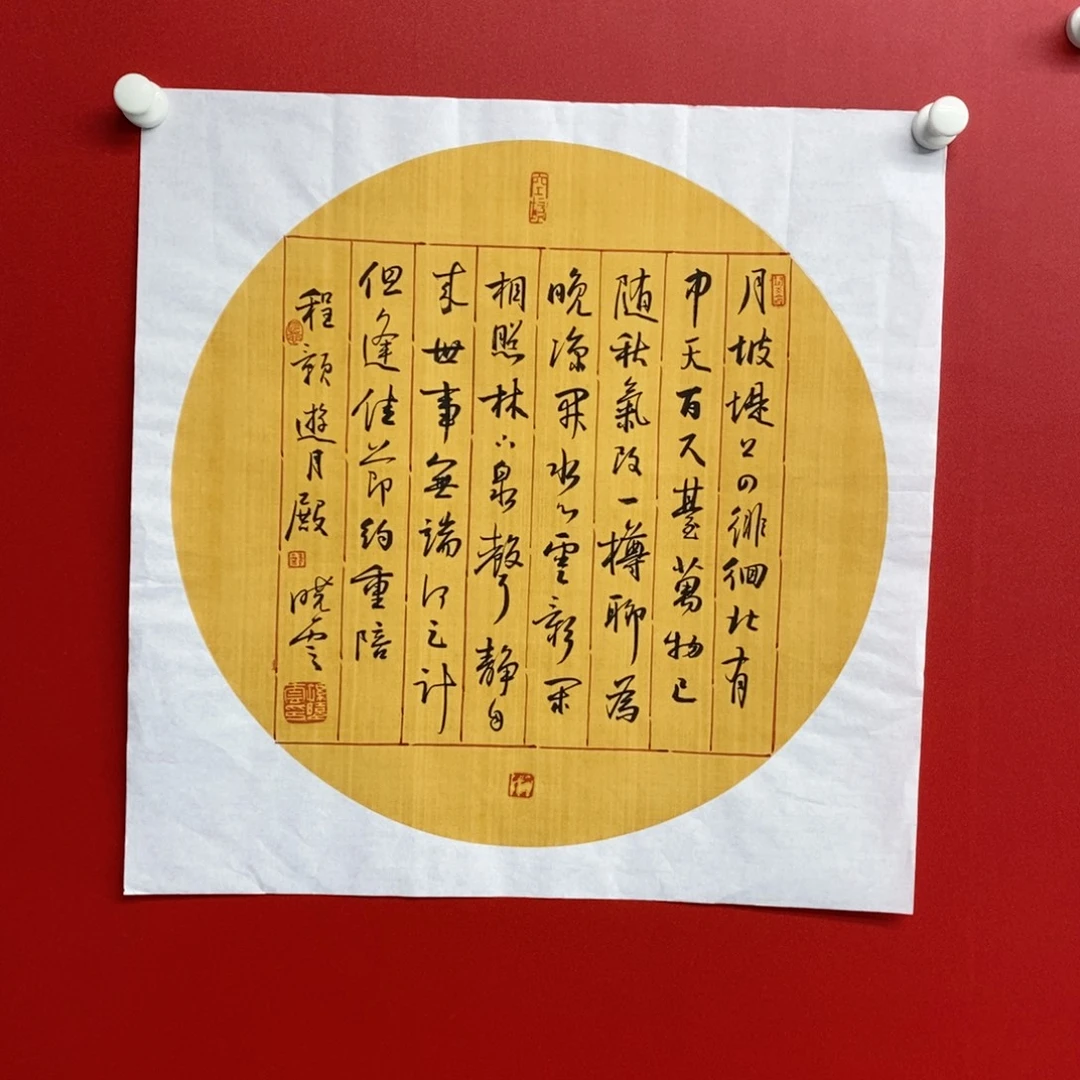 月坡堤上四徘徊北有
中天百尺臺萬物已
随秋氣改一樽聊為
晚涼開水心雲影閑
相照林下泉聲靜自
来世事無端何足計
但逢佳節約重陪
程顥遊月殿 曉雲